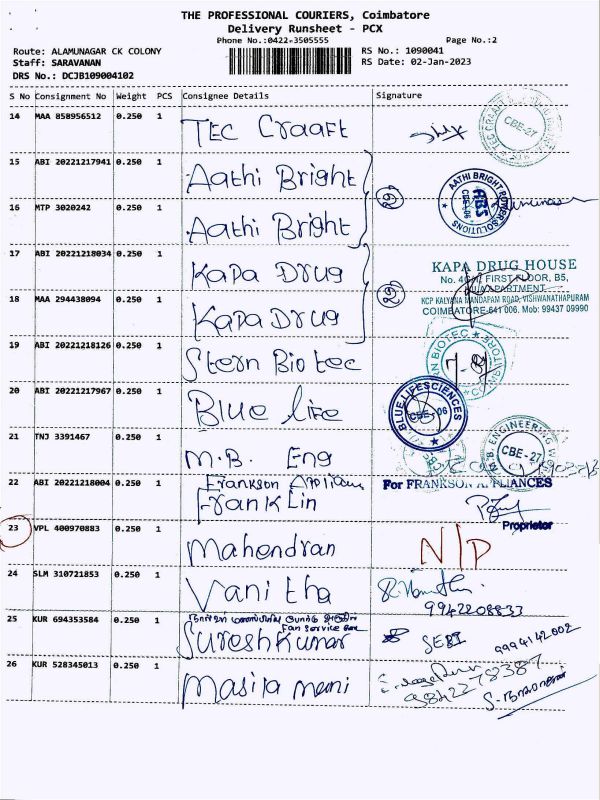 THE PROFESSIONAL COURIERS, Coimbatore
Delivery Runsheet - PCX
Phone No.:0422-3505555 Page No.:2
Route: ALAMUNAGAR CK COLONY RS No.: 1090041
Staff: SARAVANAN RS Date: 02-Jan-2023
DRS No.: DCJB109004102
S No Consignment No Weight PCS Consignee Details Signature
14 MAA 858956512 0.250 1 TEC Craaft
TEC CRAAFT CBE-27
15 ABI 20221217941 0.250 1 Aathi Bright
AATHI BRIGHT POWER SOLUTIONS ABS CBE-06
16 MTP 3020242 0.250 1 Aathi Bright
17 ABI 20221218034 0.250 1 Kapa Drug
KAPA DRUG HOUSE
FIRST FLOOR, B5,
APARTMENT
KCP KALYANA MANDAPAM ROAD, VISHWANATHAPURAM
COIMBATORE-641 006. Mob: 99437 09990
18 MAA 294438094 0.250 1 Kapa Drug
19 ABI 20221218126 0.250 1 Stern Bio tec
BIOTEC
20 ABI 20221217967 0.250 1 Blue life
BLUE LIFESCIENCES CBE-06
21 TNJ 3391467 0.250 1 M.B. Eng
M.B. ENGINEERING CBE-27
22 ABI 20221218004 0.250 1 Frankson Appliances
Franklin
For FRANKSON APPLIANCES
Proprietor
23 VPL 400970883 0.250 1 Mahendran N/P
24 SLM 310721853 0.250 1 Vanitha
9942208833
25 KUR 694353584 0.250 1
Fan Service
Sureshkumar SEBI 9994142002
26 KUR 528345013 0.250 1 Masila mani
9842278387